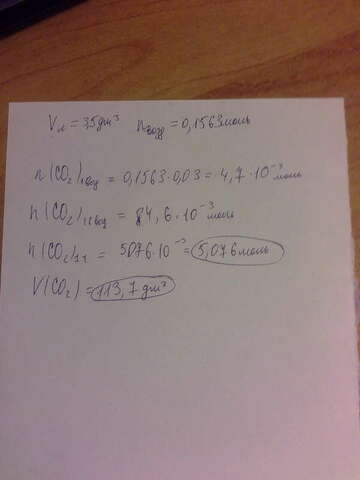 Vл = 3,5 дм³ nвозд = 0,1563 моль
n(CO₂)1выд = 0,1563·0,03 = 4,7·10⁻³ моль
n(CO₂) = 84,6·10⁻³ моль
n(CO₂)1ч = 5076·10⁻³ = 5,076 моль
V(CO₂) = 113,7 дм³